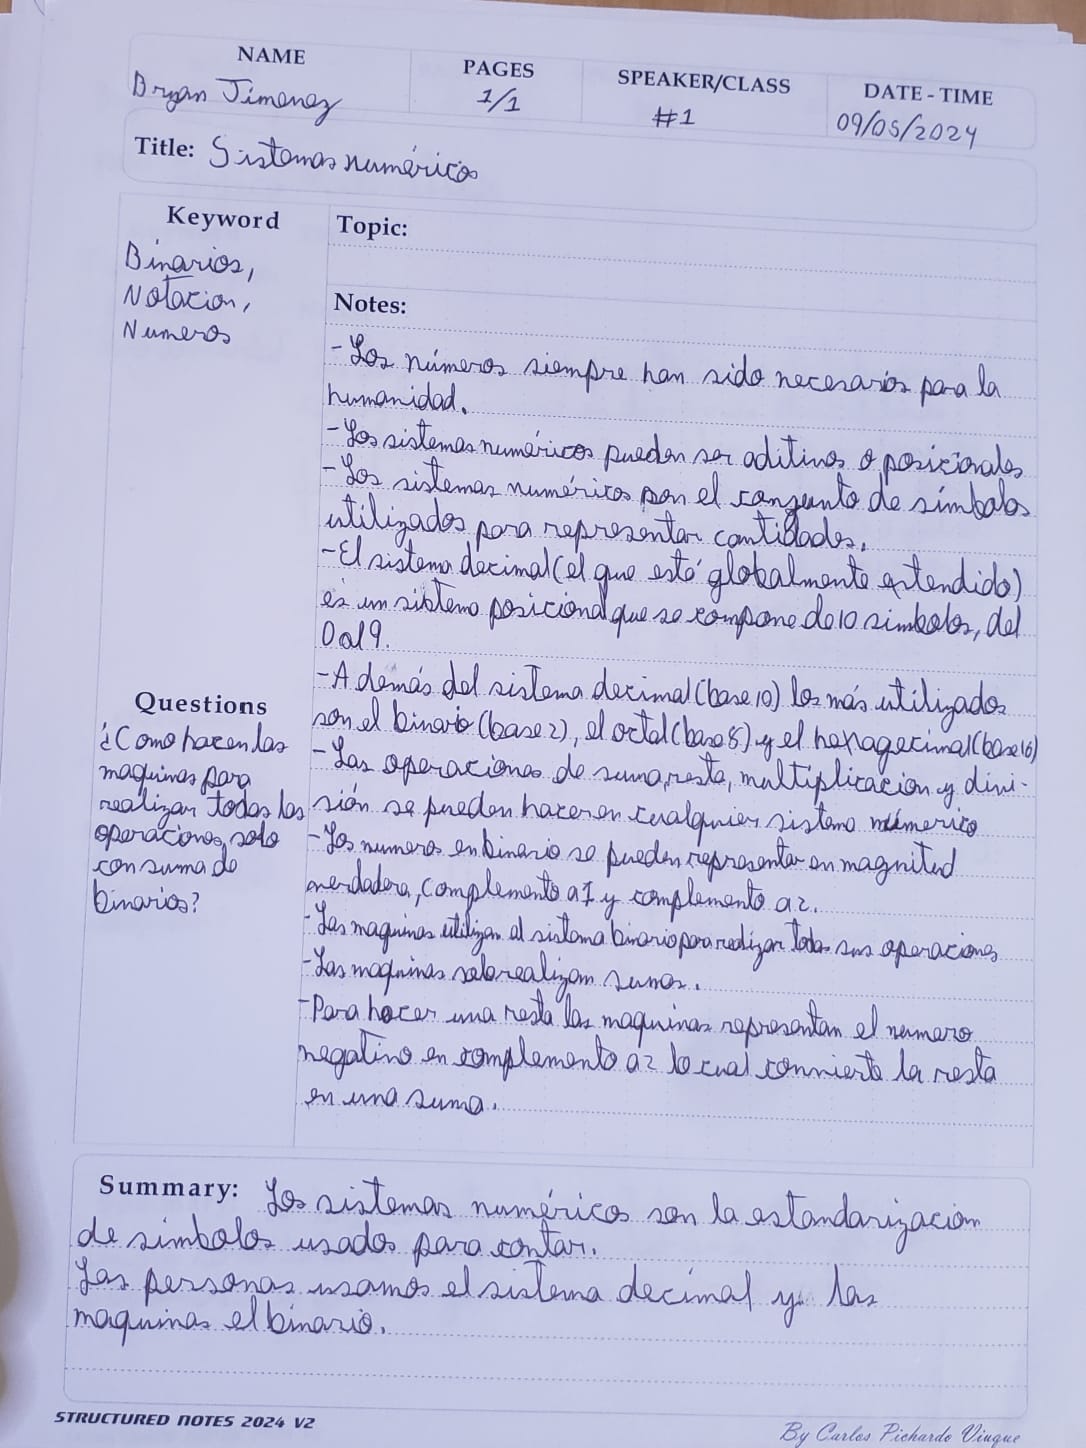 NAME
Bryan Jimenez
PAGES
1/1
SPEAKER/CLASS
#1
DATE - TIME
09/05/2024
Title: Sistemas numéricos
Keyword
Binarios,
Notacion,
Numeros
Topic:
Notes:
- Los números siempre han sido necesarios para la
humanidad.
- Los sistemas numéricos pueden ser aditivos o posicionales
- Los sistemas numéricos son el conjunto de símbolos
utilizados para representar cantidades.
- El sistema decimal (el que está globalmente extendido)
es un sistema posicional que se compone de 10 simbolos, del
0 al 9.
- Además del sistema decimal (base 10) los más utilizados
son el binario (base 2), el octal (base 8) y el hexagecimal (base 16)
- Las operaciones de suma, resta, multiplicación y divi-
sión se pueden hacer en cualquier sistema númerico
- Los numeros en binario se pueden representar en magnitud
verdadera, complemento a 1 y complemento a 2.
- Las maquinas utilizan el sistema binario para realizar todas sus operaciones
- Las maquinas solo realizan sumas.
- Para hacer una resta las maquinas representan el numero
negativo en complemento a 2 lo cual convierte la resta
en una suma.
Questions
¿Como hacen las
maquinas para
realizar todas las
operaciones solo
con suma de
binarios?
Summary: Los sistemas numéricos son la estandarización
de símbolos usados para contar.
Las personas usamos el sistema decimal y las
maquinas el binario.
STRUCTURED NOTES 2024 V2
By Carlos Pichardo Viuque